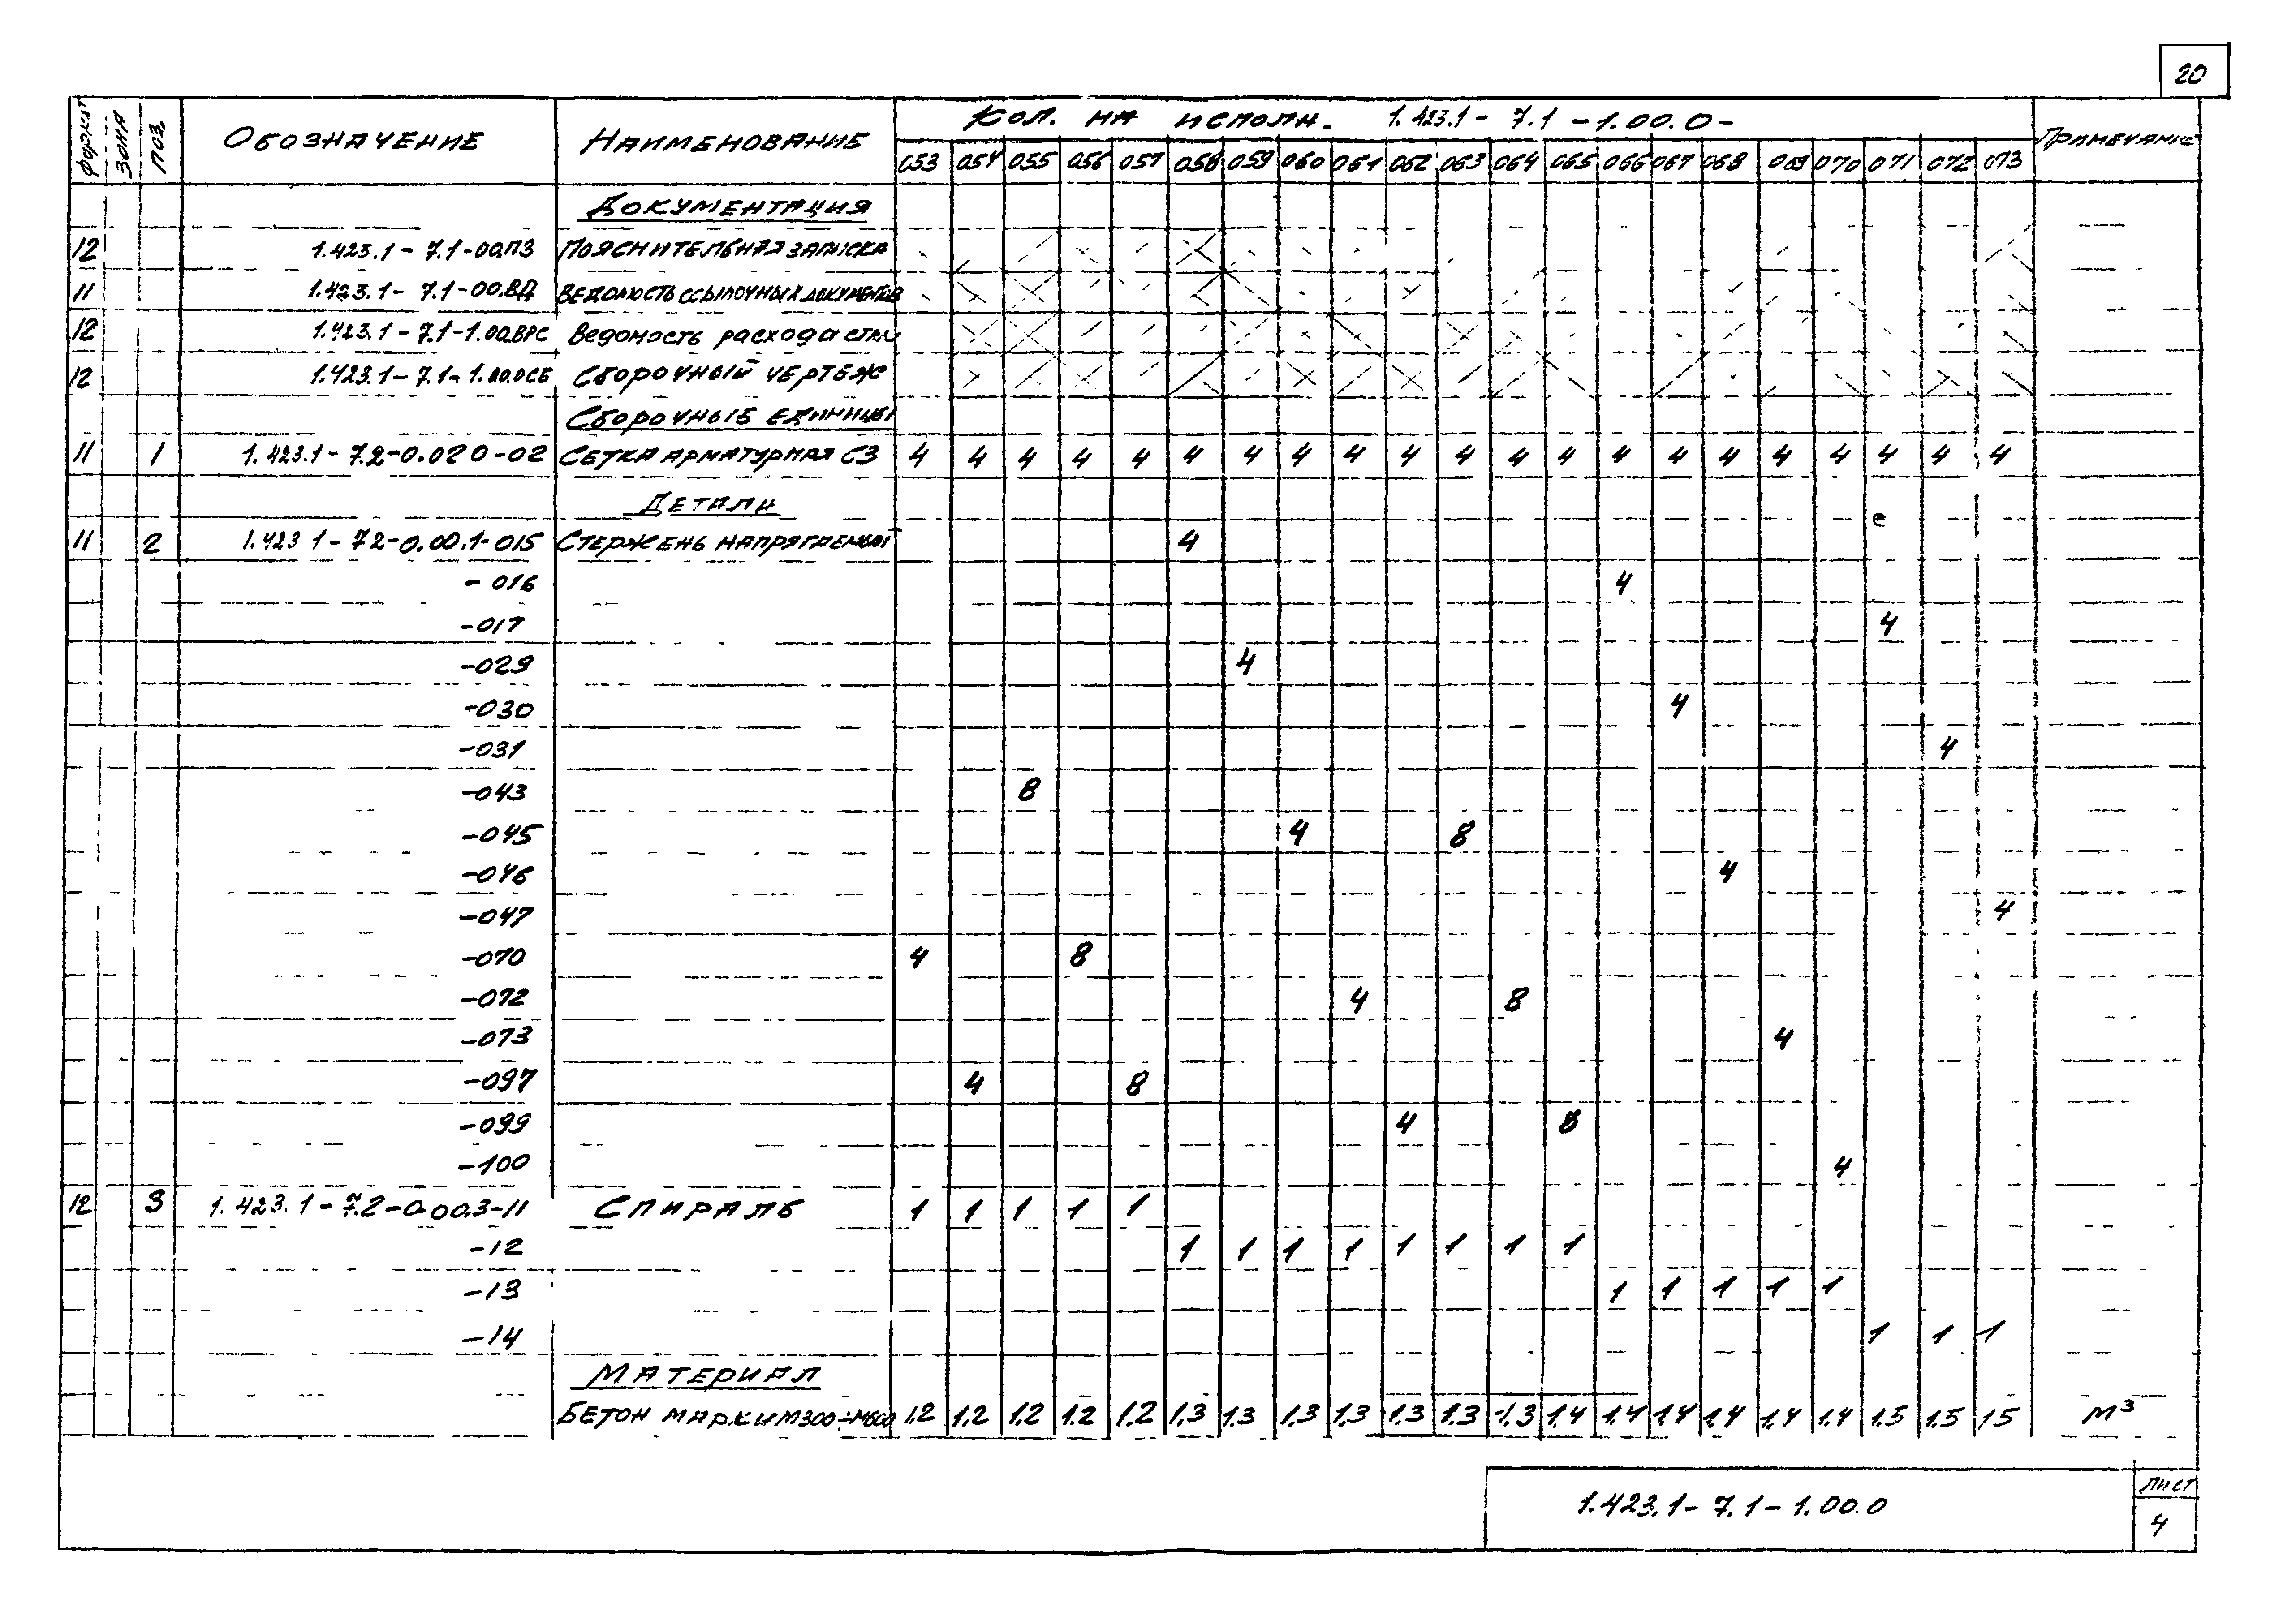 20
Формат Зона Поз. Обозначение Наименование Кол. на исполн. 1.423.1-7.1-1.00.0- Примечание
053 054 055 056 057 058 059 060 061 062 063 064 065 066 067 068 069 070 071 072 073
Документация
12 1.423.1-7.1-00.ПЗ Пояснительная записка
11 1.423.1-7.1-00.ВД Ведомость ссылочных документов
12 1.423.1-7.1-1.00.ВРС Ведомость расхода стали
12 1.423.1-7.1-1.00.0СБ Сборочный чертеж
Сборочные единицы
11 1 1.423.1-7.2-0.020-02 Сетка арматурная С3 4 4 4 4 4 4 4 4 4 4 4 4 4 4 4 4 4 4 4 4 4
Детали
11 2 1.423 1-7.2-0.00.1-015 Стержень напрягаемый 4
-016 4
-017 4
-029 4
-030 4
-031 4
-043 8
-045 4 8
-046 4
-047 4
-070 4 8
-072 4 8
-073 4
-097 4 8
-099 4 8
-100 4
12 3 1.423.1-7.2-0.00.3-11 Спираль 1 1 1 1 1
-12 1 1 1 1 1 1 1 1
-13 1 1 1 1 1
-14 1 1 1
Материал
Бетон марки М300÷М600 1.2 1.2 1.2 1.2 1.2 1.3 1.3 1.3 1.3 1.3 1.3 1.3 1.4 1.4 1.4 1.4 1.4 1.4 1.5 1.5 15 м³
1.423.1-7.1-1.00.0
Лист
4